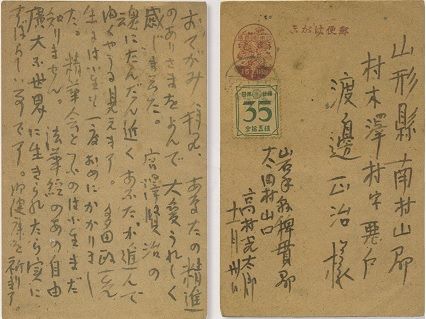 郵便はがき
35
山形縣南村山郡
村木澤村字悪戸
渡邊正治様
岩手縣稗貫郡
太田村山口
高村光太郎
十一月卅日
おてがみ拝見、あなたの精進
のありさまをよんで大変うれしく
感じました。宮澤賢治の
魂にだんだん近くあなたが進んで
ゆくやうに見えます。多田政介先
生には小生も一度おめにかかりまし
た。精華会といふのは小生まだ
知りません。法華経のあの自由
廣大な世界に生きられたら実に
すばらしいです。御健康を祈ります